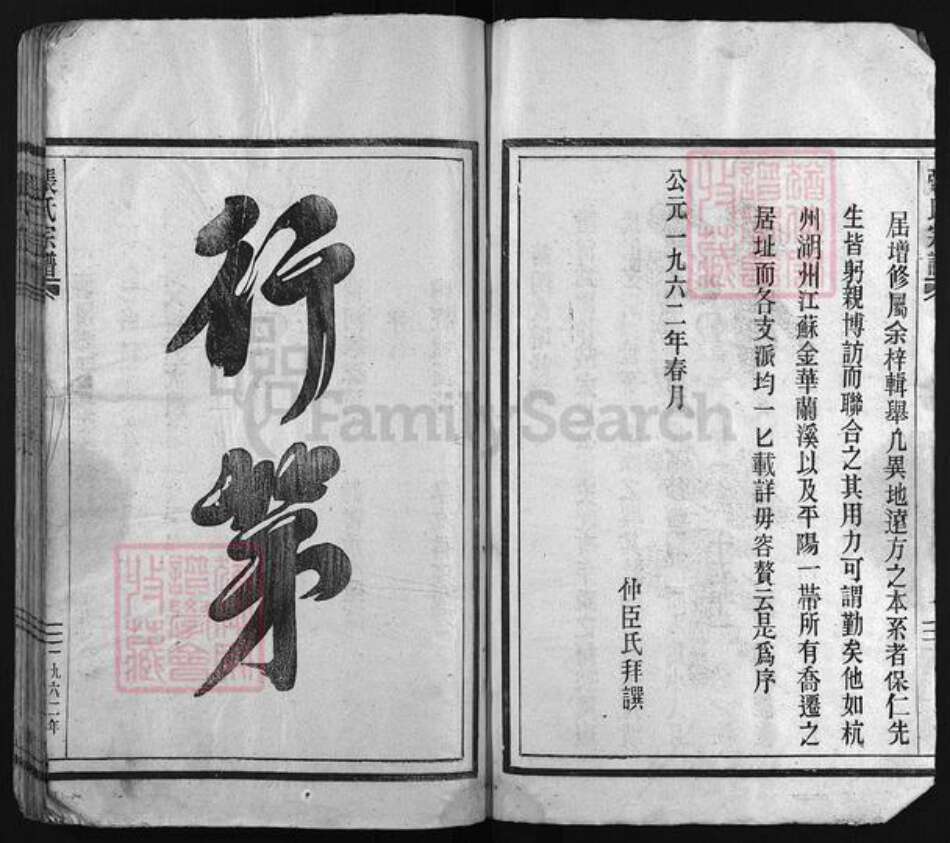 張氏宗譜
屆增修屬余梓輯舉凢異地遠方之本系者保仁先
生皆躬親博訪而聯合之其用力可謂勤矣他如杭
州湖州江蘇金華蘭溪以及平陽一帶所有喬遷之
居址而各支派均一匕載詳毋容贅云是爲序
公元一九六二年春月
仲臣氏拜譔
行第
張氏宗譜
一九六二年
FamilySearch